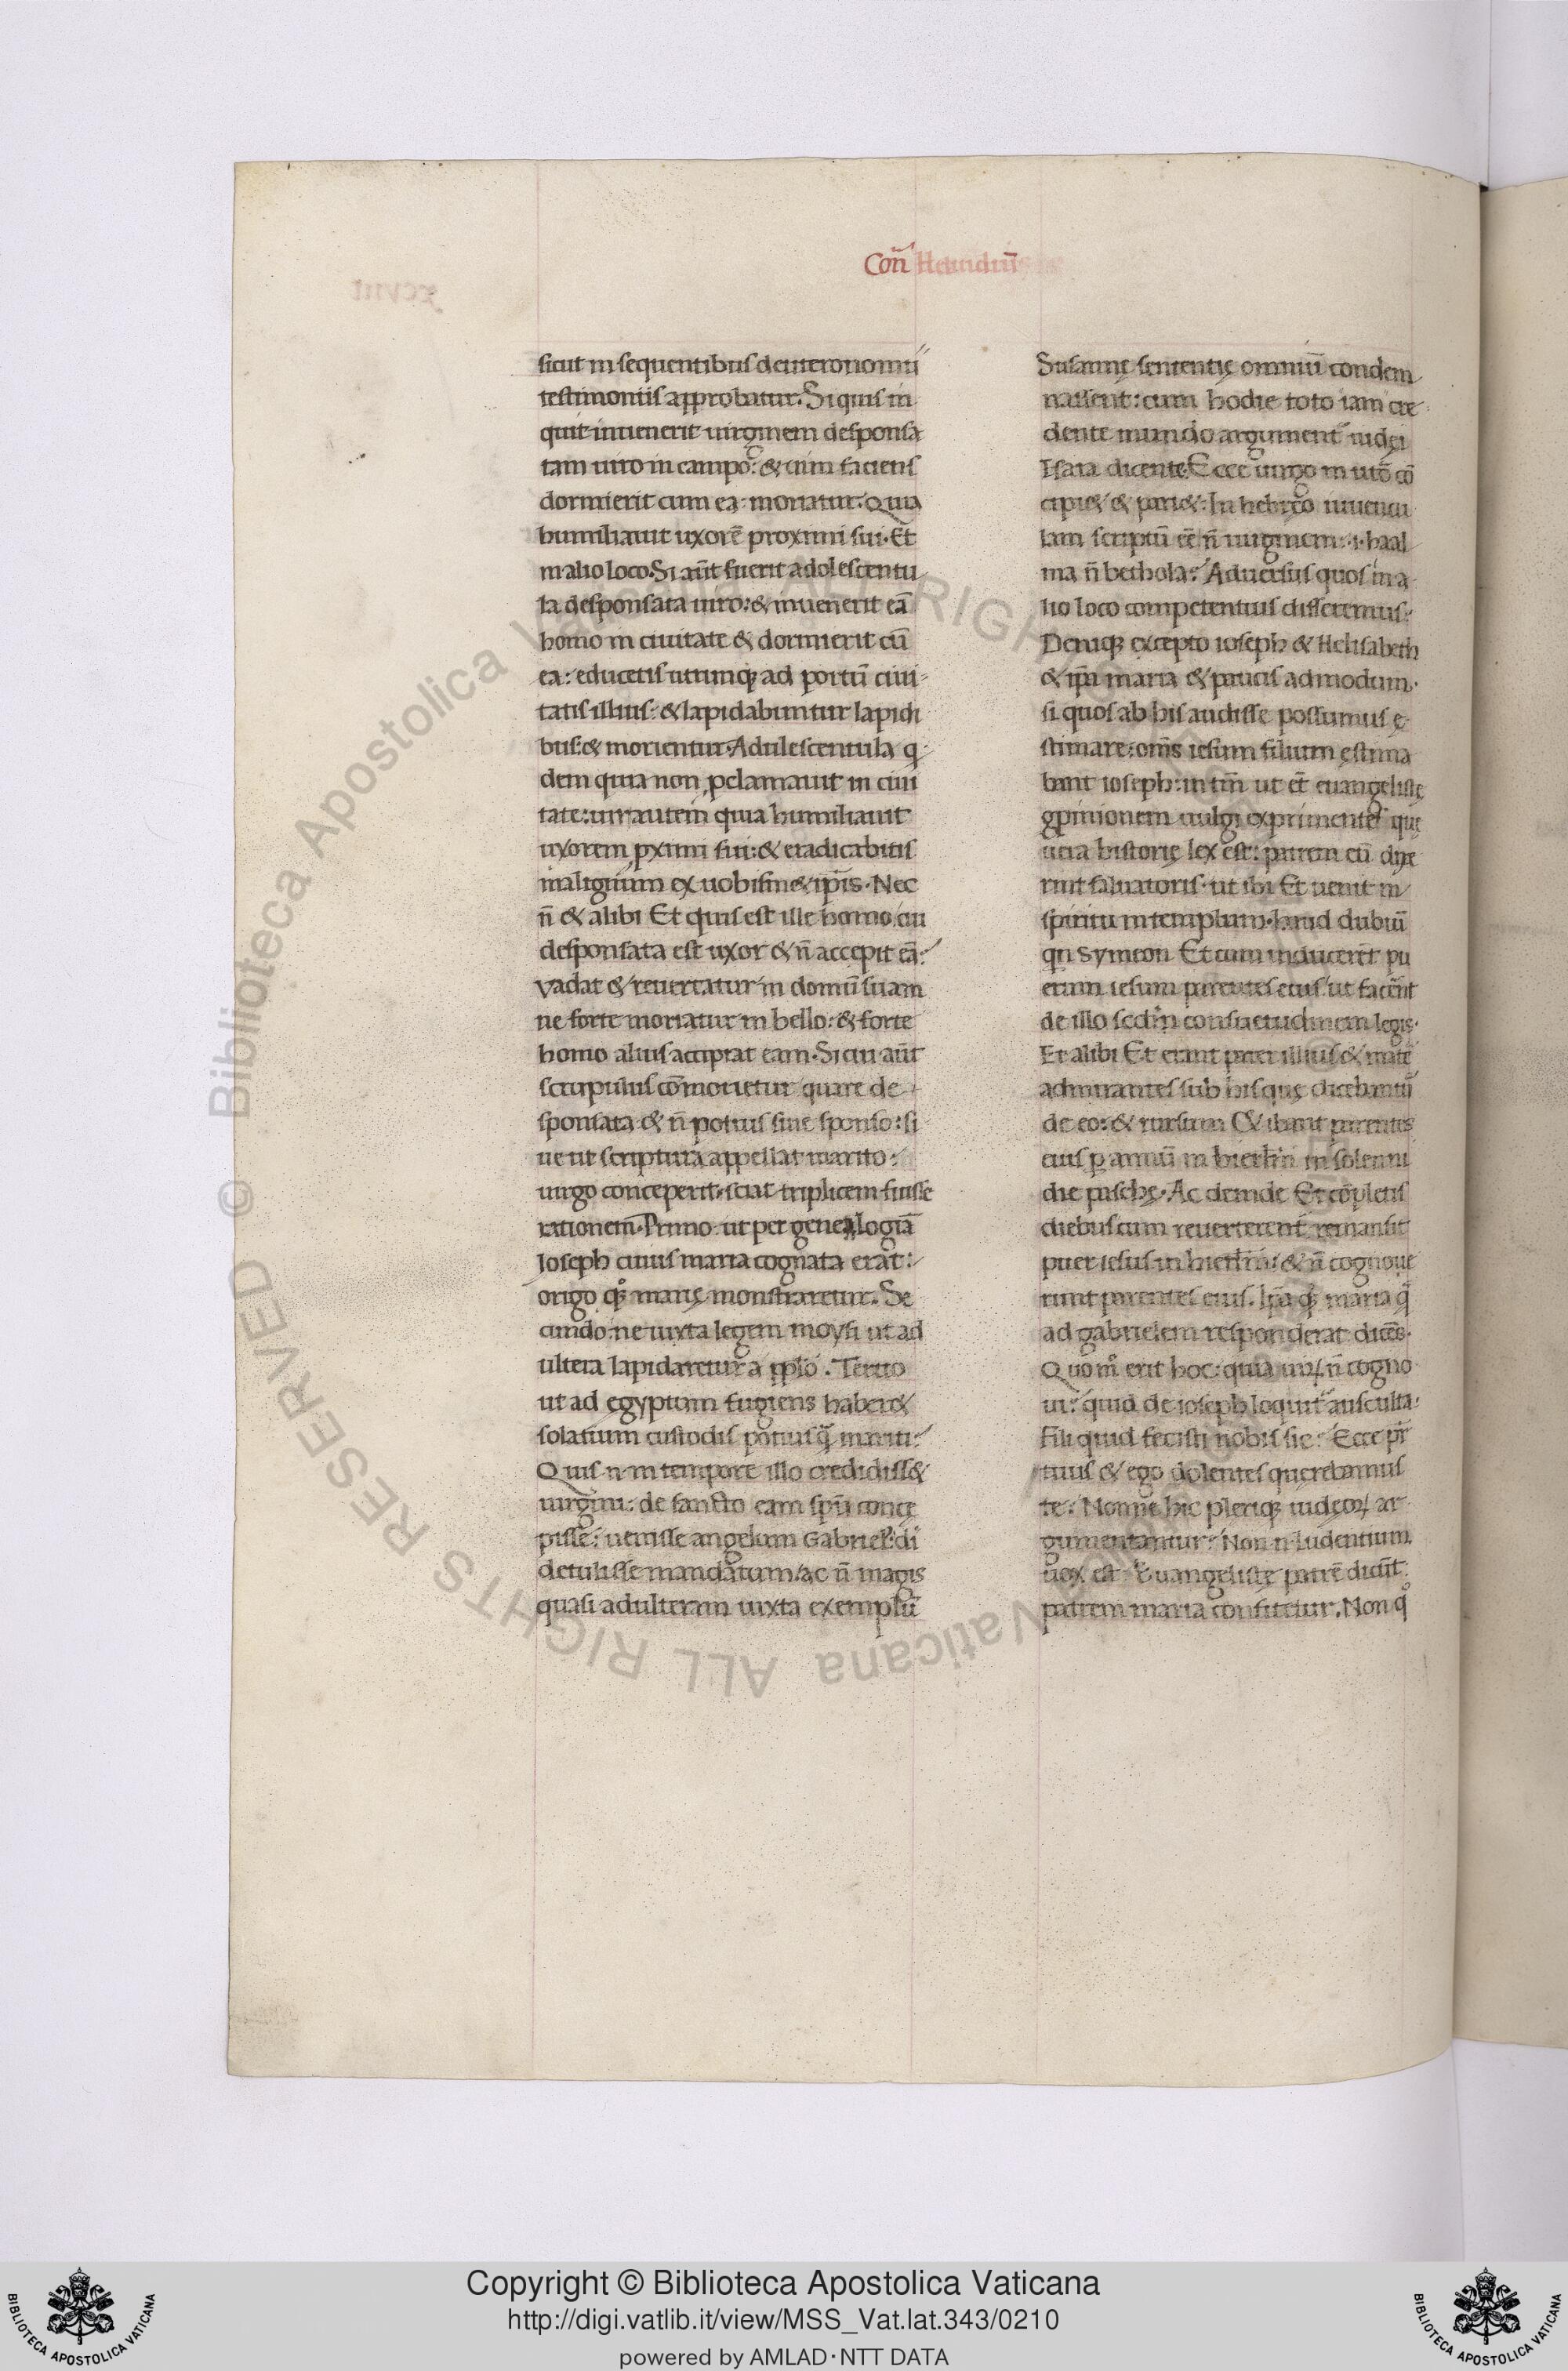 Coñ Heluidiū
sicut in sequentibus deuteronomii
testimoniis approbatur. Si quis in
quit inuenerit uirginem desponsa
tam uiro in campo: & uim faciens
dormierit cum ea: moriatur. Quia
humiliauit uxorē proximi sui. Et
in alio loco. Si aūt fuerit adolescentu
la desponsata uiro: & inuenerit eā
homo in ciuitate & dormierit cū
ea: educetis utrumq; ad portū ciui-
tatis illius: & lapidabuntur lapidi
bus: & morientur. Adulescentula q
dem quia non ꝓclamauit in ciui
tate: uir autem quia humiliauit
uxorem ꝓximi sui: & eradicabitis
malignum ex uobismet ip̄is. Nec
n̄ & alibi Et quis est ille homo cui
desponsata est uxor & n̄ accepit eā:
vadat & reuertatur in domū suam
ne forte moriatur in bello: & forte
homo alius accipiat eam. Si cui aūt
scrupulus cōmorietur quare de
sponsata & n̄ potius sine sponso: si
ue ut scriptura appellat marito:
uirgo conceperit. sciat triplicem fuisse
rationem. Primo ut per genealogiā
Ioseph cuius maria cognata erat:
origo q; marię monstraretur. Se
cundo ne iuxta legem moysi ut ad
ultera lapidaretur a pplō. Tertio
ut ad egyptum fugiens haber&
solatium custodis potius q̄ mariti:
Quis n. in tempore illo credidiss&
uirgini: de sancto eam spū conce
pisse: uenisse angelum Gabriel: di
detulisse mandatum: ac n̄ magis
quasi adulteram iuxta exemplū
Susannę sententię omniū condem
nassent: cum hodie toto iam cre
dente mundo argument̄ iudęi
Isaia dicente. Ecce uirgo in utō cō
cipi& & pari&: In hebręo iuuencu
lam scriptū eē n̄ uirginem: .i. haal
ma n̄ bethola: Aduersus quos in a
lio loco competentius disseremus.
Deniq; excepto ioseph & Helisabeth
& ip̄a maria & paucis admodum.
si quos ab his audisse possumus ę
stimare: om̄s iesum filium ęstima
bant ioseph: in tm̄ ut et̄ euangelistę
opinionem uulgi exprimentes quę
uera historię lex est: patrem eū dixe
rint saluatoris. ut ibi Et uenit in
spiritu in templum. haud dubiū
qn Symeon Et cum inducerēt pu
erum iesum parentes eius: ut facēnt
de illo secd'm consuetudinem legis.
Et alibi Et erant pater illius & mate
admirantes sub his que dicebantū
de eo: & rursum Et ibant parentes
eius p annū in hierl'm in solenni
die paschę. Ac deinde Et cōpletis
diebus cum reuerterent̄ remansit
puer iesus in hierl'm: & n̄ cognoue
runt parentes eius. Ip̄a q; maria q̄
ad gabrielem responderat dicēs.
Quōm̊ erit hoc: quia uir̄ n̄ cogno
ui: quid de ioseph loquit̄ ausculta.
Fili quid fecisti nobis sic: Ecce pr̄
tuus & ego dolentes querebamus
te: Non ne hic pleriq; iudęoꝝ ar
gumentantur: Non n. Iudentium
uox est Euangelistę patrē dicūt
patrem maria confitetur. Non q̊
Copyright © Biblioteca Apostolica Vaticana
http://digi.vatlib.it/view/MSS_Vat.lat.343/0210
powered by AMLAD·NTT DATA